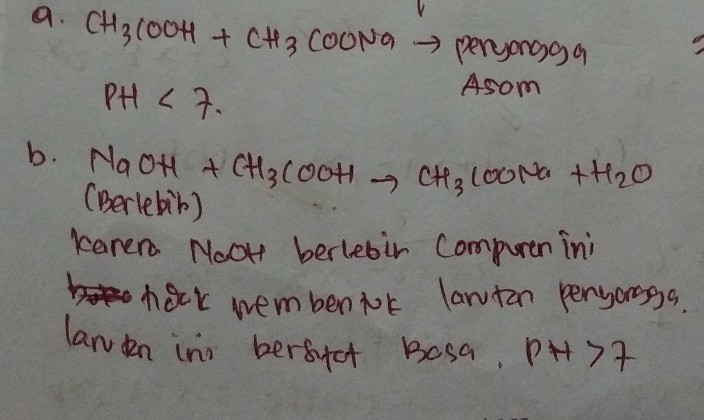 a. CH3COOH + CH3COONa → penyangga
Asam
PH < 7.
b. NaOH + CH3COOH → CH3COONa + H2O
(Berlebih)
Karena NaOH berlebih Campuran ini
tidak membentuk larutan penyangga.
larutan ini bersifat Basa. PH > 7